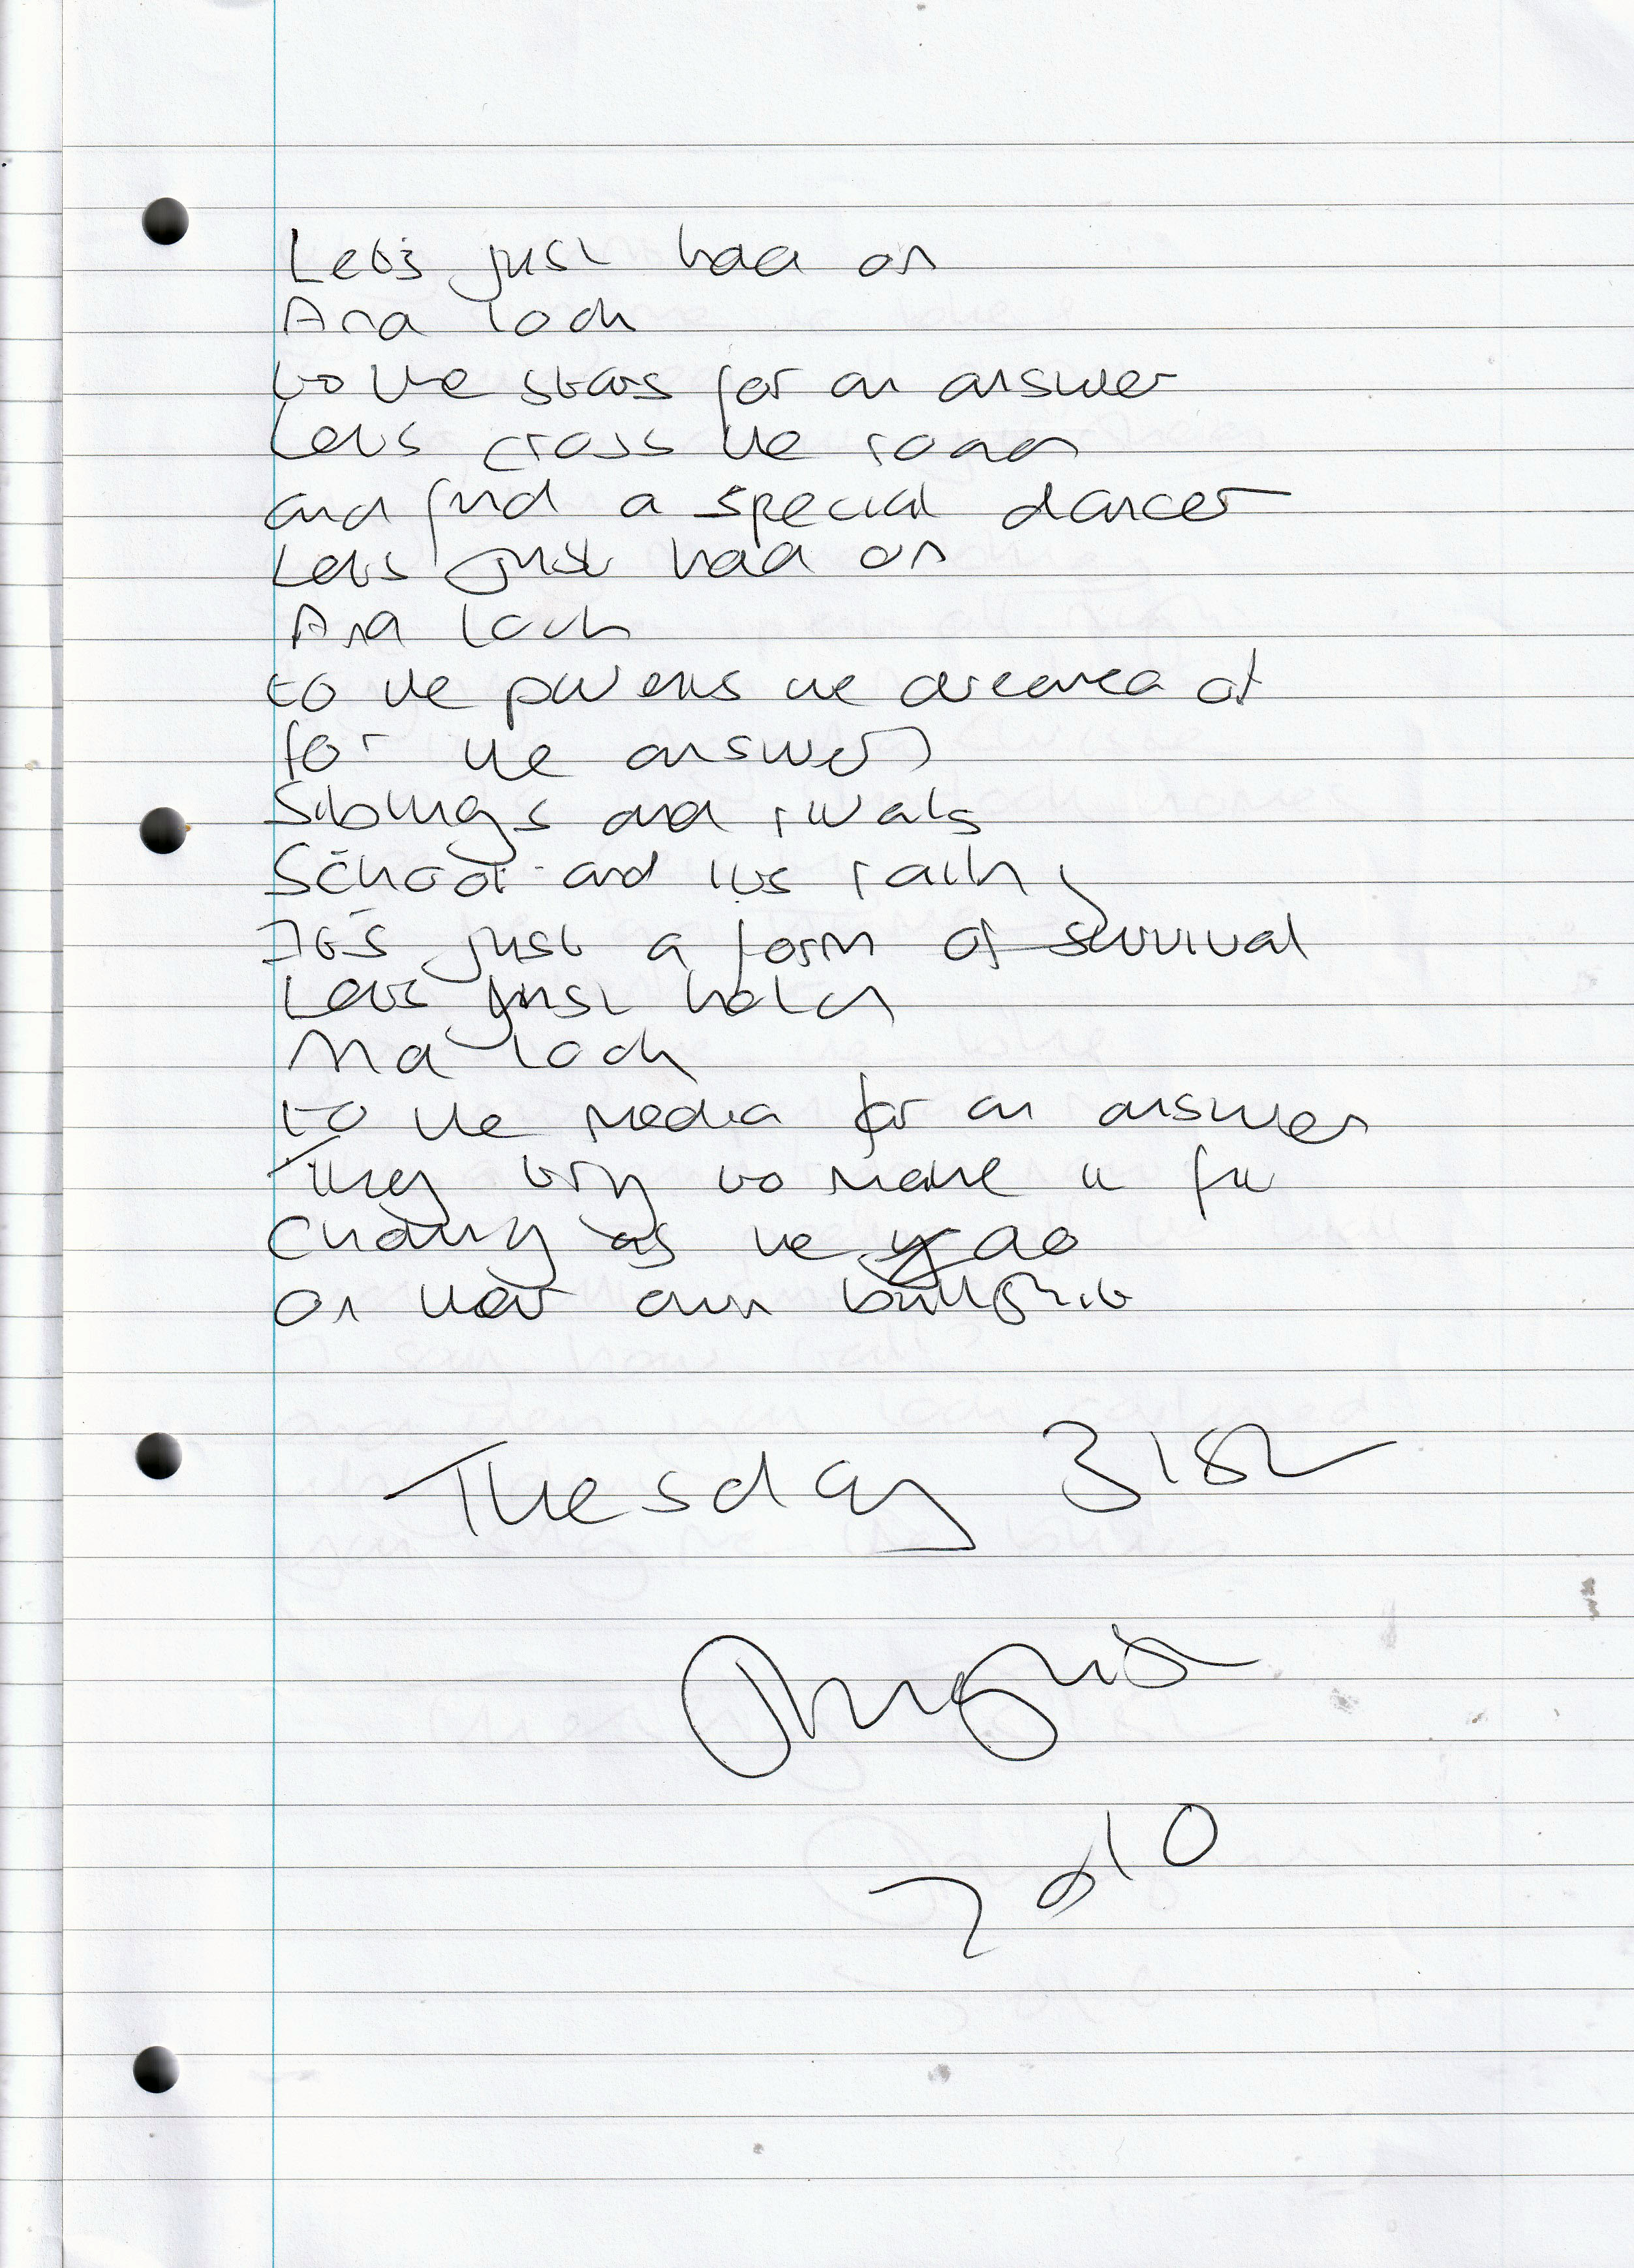 Let's just hold on
And look
to the stars for an answer
Lets cross the room
and find a special dancer
Lets just hold on
And look
to the parents we dreamed of
for the answers
Siblings and rivals
School and its
It's just a form of survival
Lets just hold on
And look
to the media for an answer
They try to make it fit
as we do
on their own
Tuesday 31st
August
2010